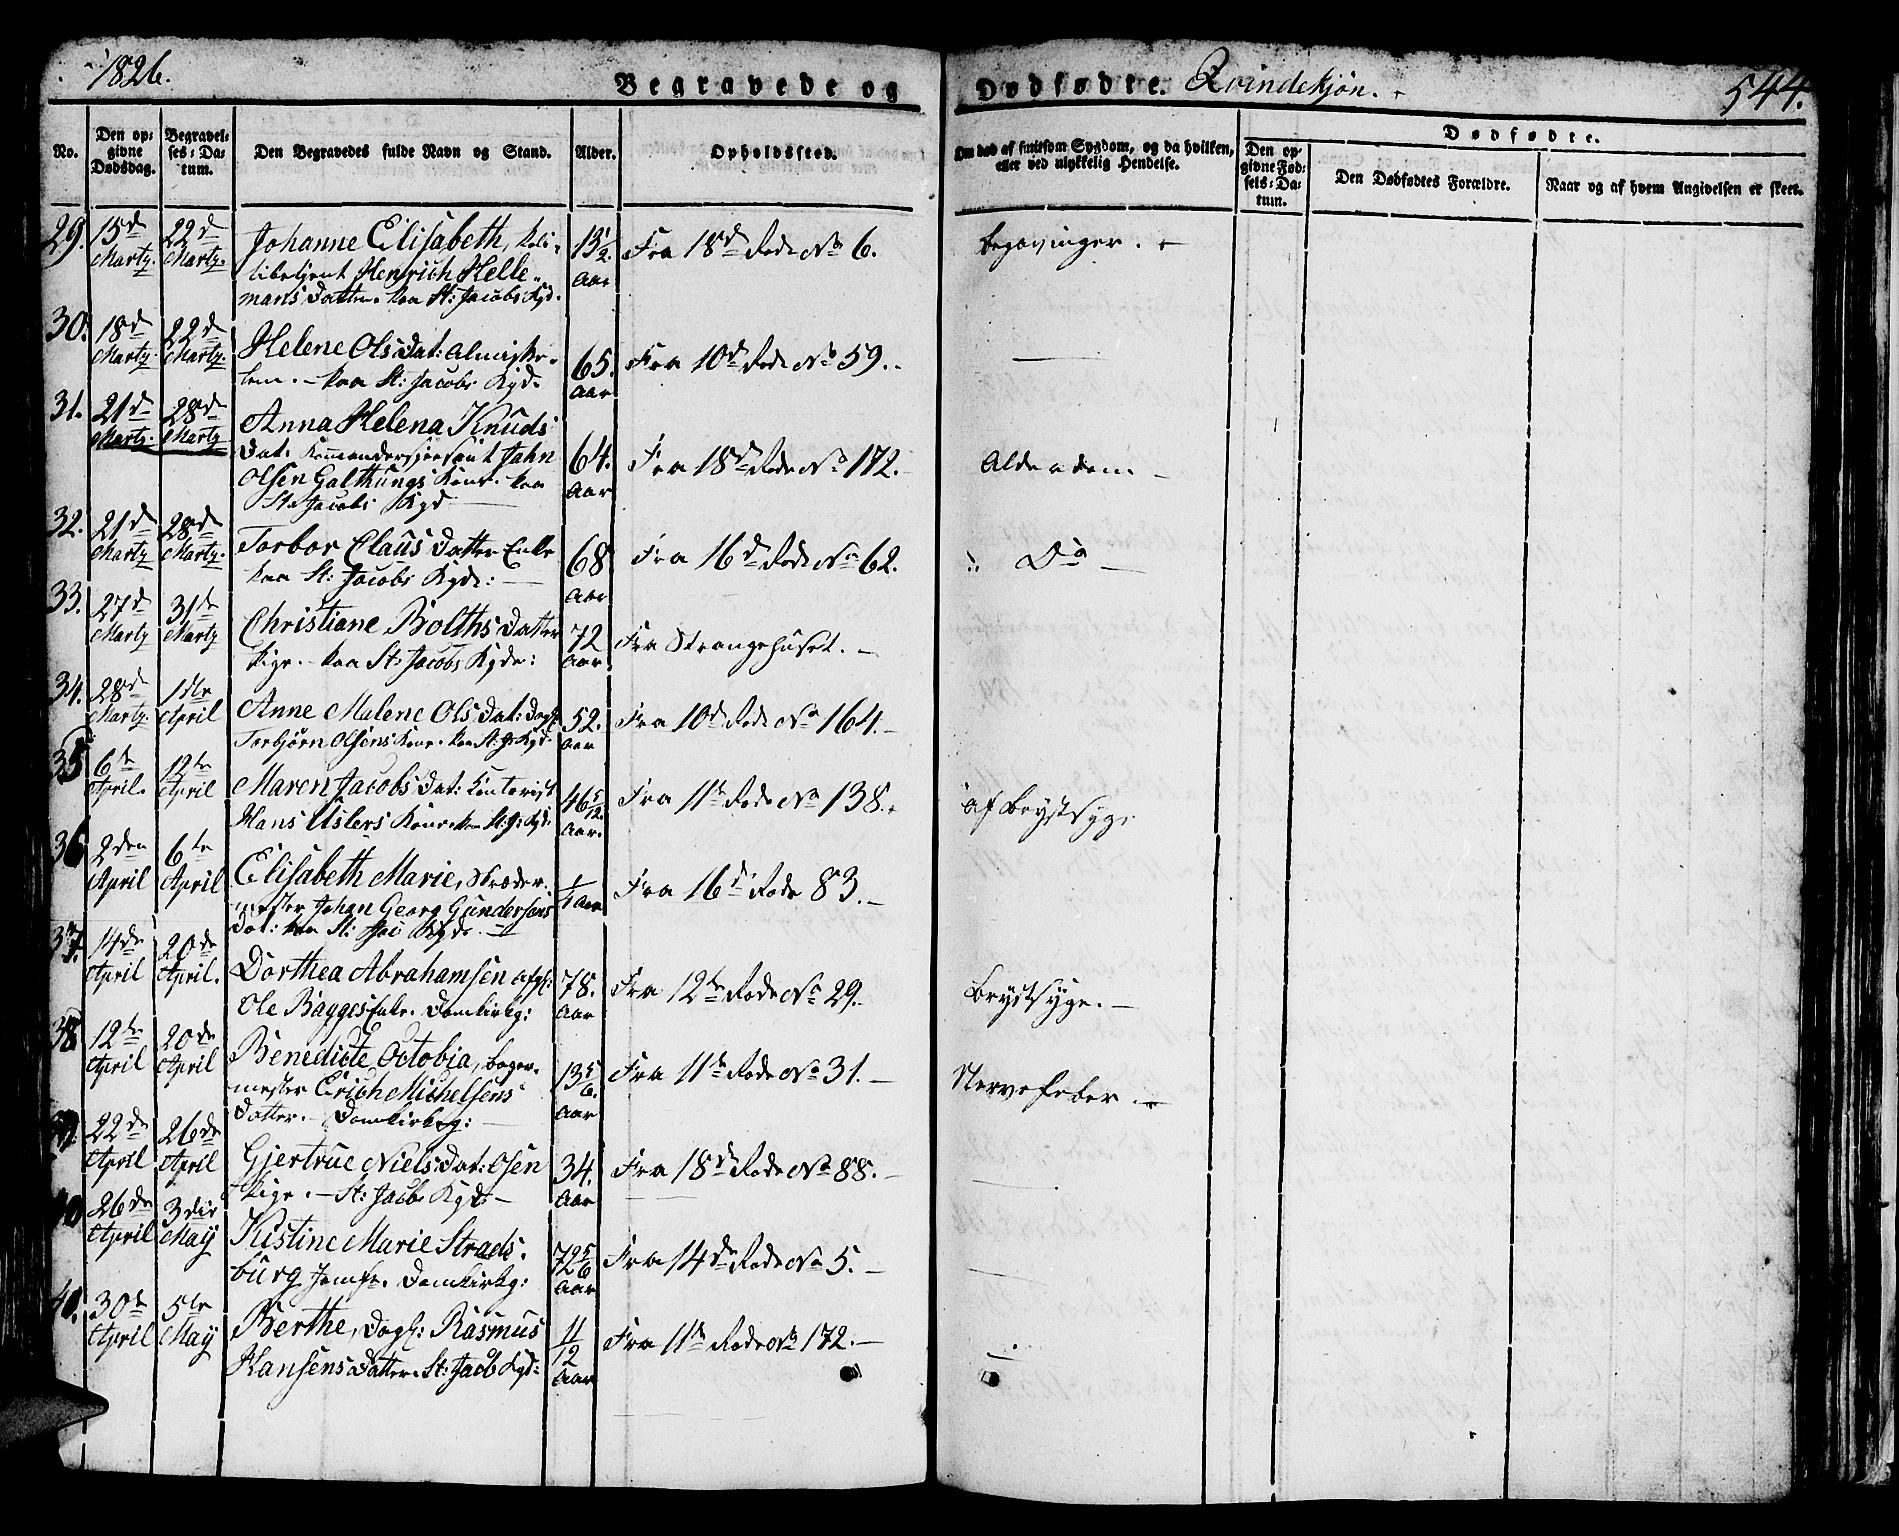 1826.
Begravede og
Dødfødte. Qvindekjøn.
544.
No.
Den op-
givne
Dødsdag.
Begravel-
ses-Da-
tum.
Den Begravedes fulde Navn og Stand.
Alder.
Opholdssted.
Om død af smitsom Sygdom, og da hvilken,
eller ved ulykkelig Hendelse.
Dødfødte.
Den op-
givne Fød-
sels-Da-
tum.
Den Dødfødtes Forældre.
Naar og af hvem Angivelsen er skeet.
29. 15d Martz. 22d Martz. Johanne Elisabeth,
Henrich Helle-
mans Datter. paa St: Jacobs Kgd.
13 1/2 Aar
Fra 18d Rode No 6.
30. 18d Martz. 22d Martz. Helene Ols Dat: Almisse-
lem. - paa St: Jacobs Kgd.
65. Aar
Fra 10d Rode No 59.
31. 21d Martz. 28d Martz Anna Helena Knuds
Dat: John
Olsen Galthungs Kone. paa
St: Jacobs Kgd
64. Aar
Fra 18d Rode No 172.
Alderdom
32. 21d Martz 28d Martz. Torbor Claus Datter Enke
paa St: Jacobs Kgd:
68 Aar
Fra 16d Rode No 62.
Do
33. 27d Martz 31te Martz Christiane Bolths Datter
Pige. - paa St: Jacobs Kgd:
72 Aar
Fra Strangehuset.
34. 28d Martz. 1ste April Anne Malene Ols Dat: Dagl:
Torbjørn Olsens Kone. paa St: J: Kgd.
52. Aar
Fra 10d Rode No 164.
35 6te April. 12te April Maren Jacobs Dat: Contorist
Hans Uslers Kone. paa St: J: Kgd.
46 5/12 Aar.
Fra 11te Rode No 138.
af Brystsyge
36 2den April 6te April Elisabeth Marie, Skræder-
mester Johan Georg Gundersens
Dat: paa St: Jac: Kgd.
Aar
Fra 16d Rode 83.
37. 14de April 20de April. Dorthea Abrahamsen afgl:
Ole Bagges Enke. Domkirkg:
78. Aar
Fra 12te Rode No 29.
Brystsyge.
38 12te April 20de April Benedicte Octobia, Bager-
mester Erich Michelsens
Datter. - Domkirkg:
13 5/6. Aar
Fra 11te Rode No 31.
Nervefeber.
39. 22de April 26de April Gjertrue Niels Dat: Osen
Pige. - St: Jacobs Kgd:
34. Aar
Fra 18d Rode No 88.
40 26de April 3die May Kistine Marie Strads-
burg Jomfr. Domkirkg:
72 5/6 Aar
Fra 14de Rode No 5.
41. 30te April 5te May Berthe, Dagl: Rasmus
Hansens Datter. St: Jacob Kgd:
11/12 Aar
Fra 11te Rode No 172.